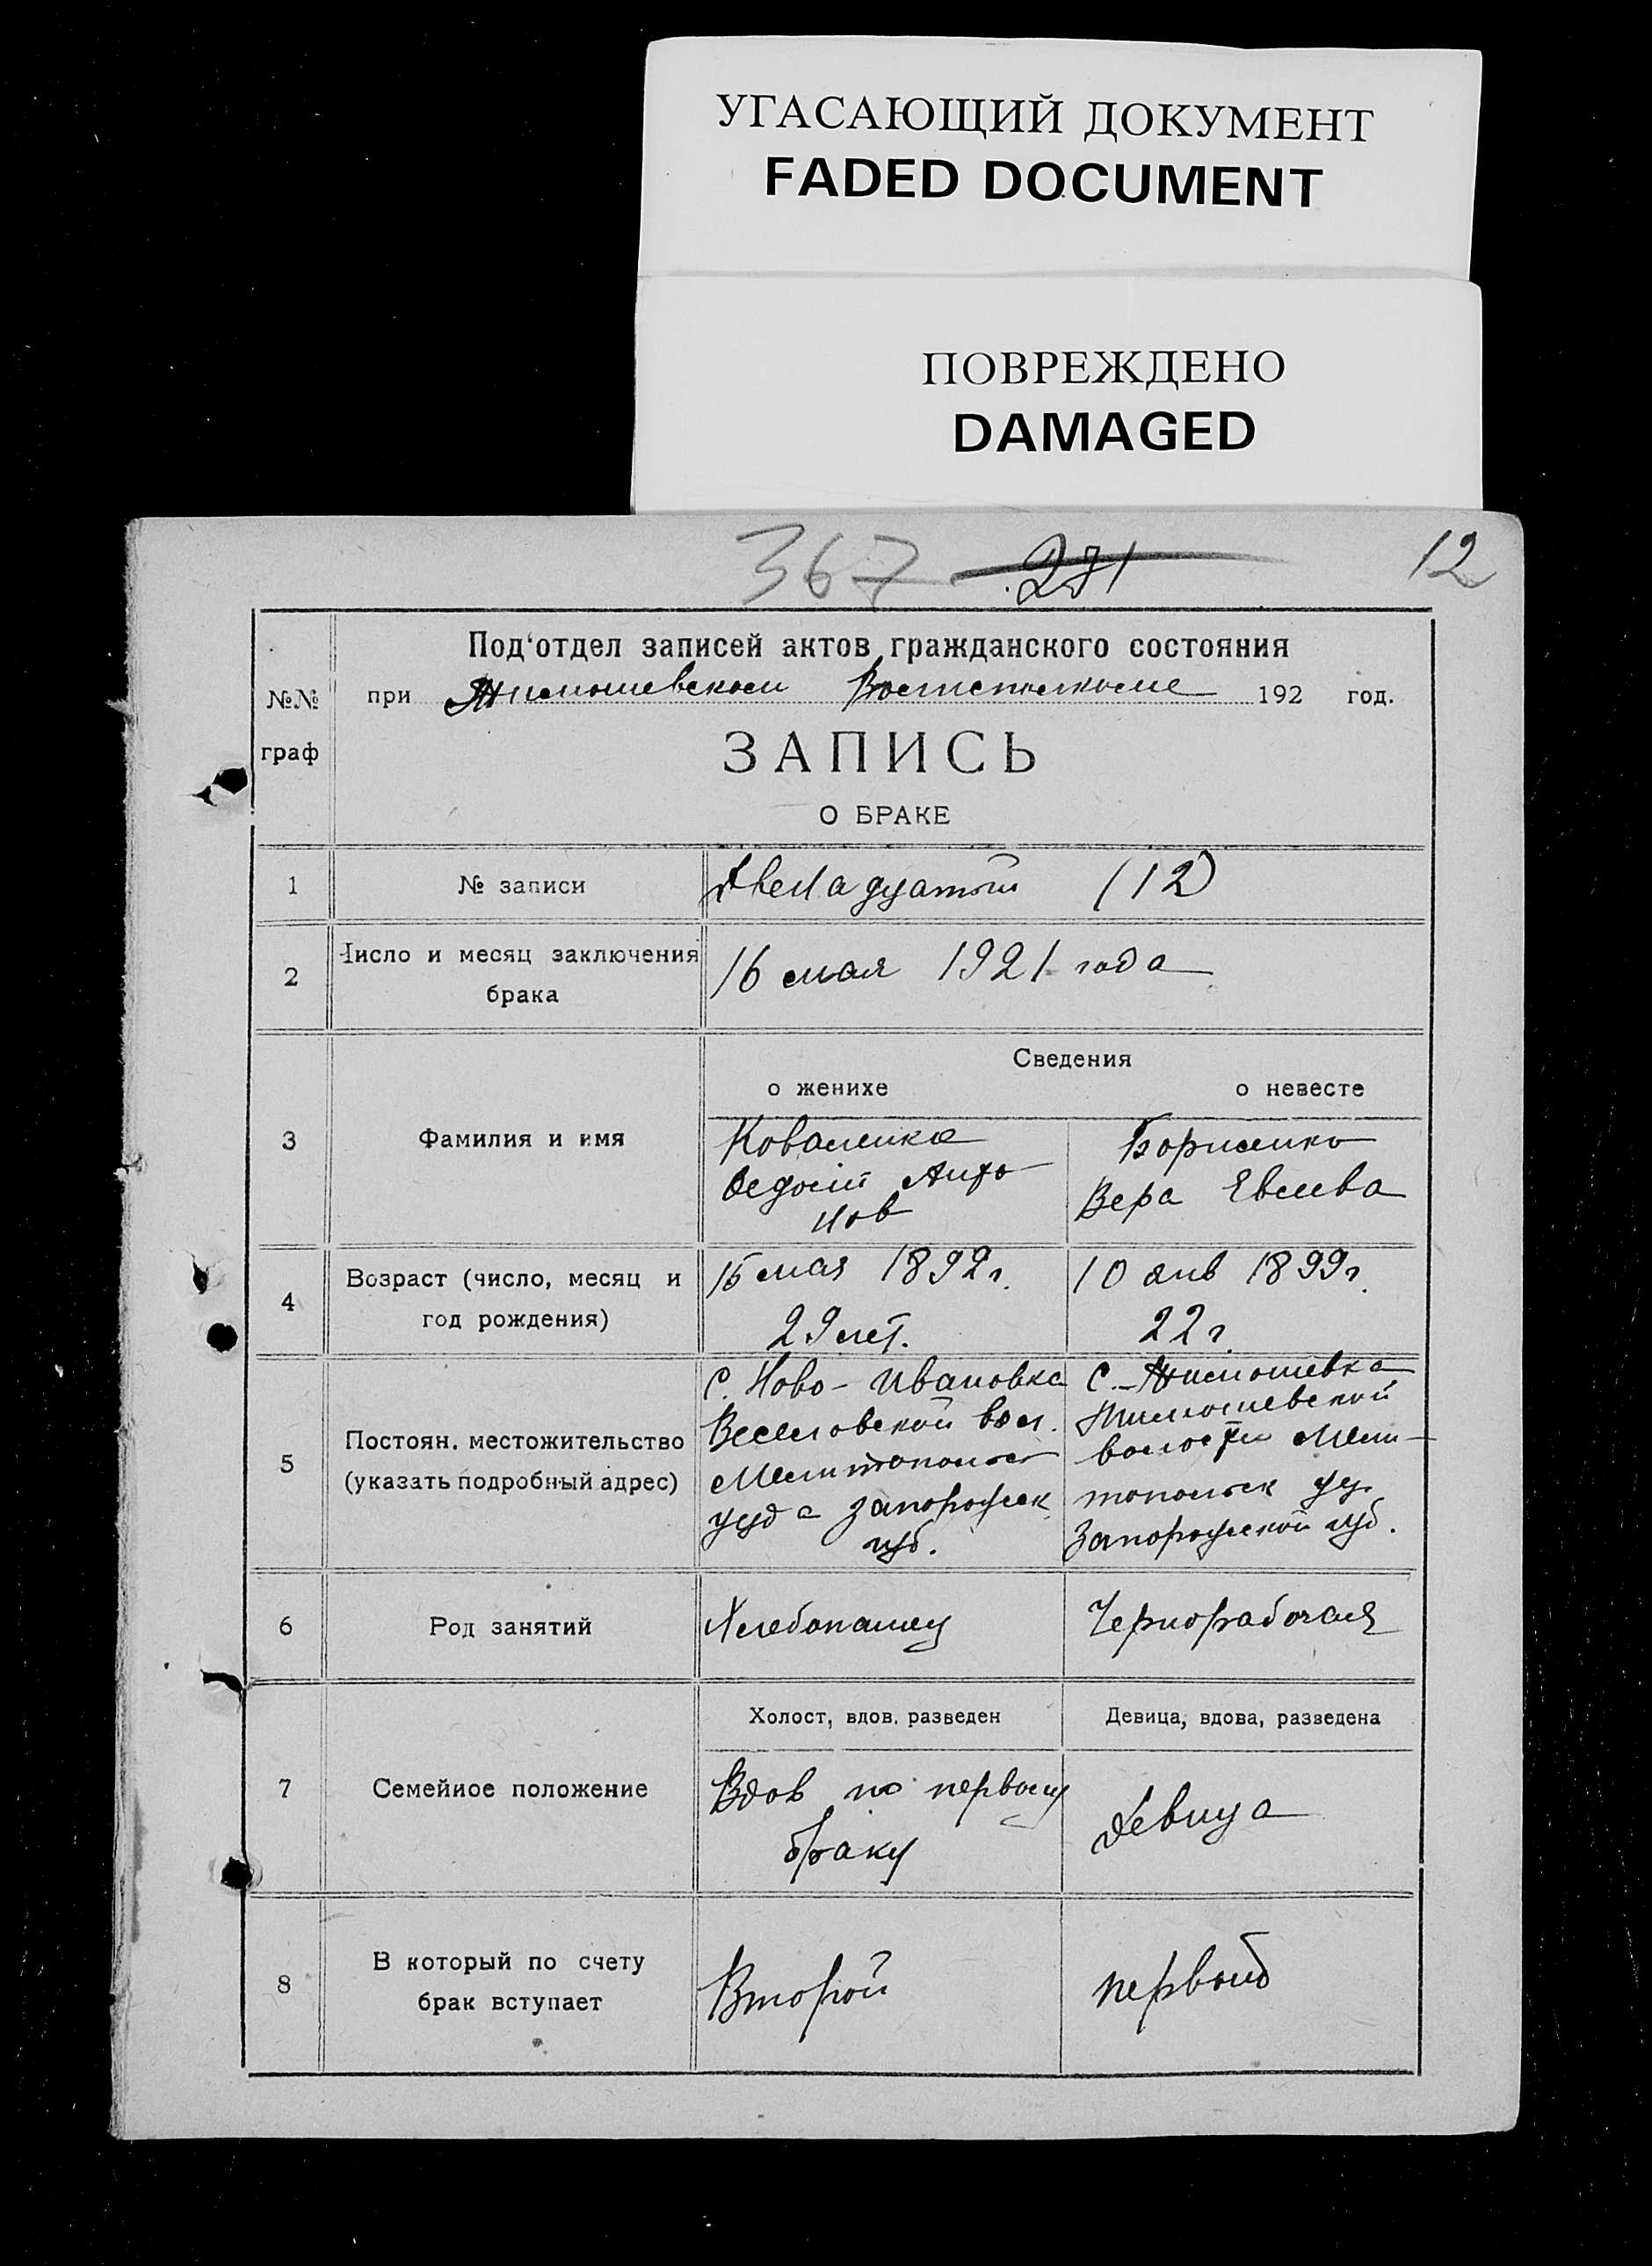 УГАСАЮЩИЙ ДОКУМЕНТ
FADED DOCUMENT
ПОВРЕЖДЕНО
DAMAGED
367 271 12
Под‘отдел записей актов гражданского состояния
№№ при Тимошевском Волисполкоме 192 год.
граф
ЗАПИСЬ
О БРАКЕ
1 № записи Двенадцатый (12)
2 Число и месяц заключения брака 16 мая 1921 года
Сведения
о женихе о невесте
3 Фамилия и имя
Коваленко
Федосий Анто
нов
Борисенко
Вера Евсева
4 Возраст (число, месяц и
год рождения)
15 мая 1892 г.
29 лет.
10 янв 1899 г.
22 г.
5 Постоян. местожительство
(указать подробный адрес)
С. Ново-Ивановка
Веселовской вол.
Мелитопольс
уезда Запорожск
губ.
С. Тимошевка
Тимошевской
волости Мели-
топольск уу.
Запорожской губ.
6 Род занятий Хлебопашец Чернорабочая
Холост, вдов. разведен Девица, вдова, разведена
7 Семейное положение
Вдов по первому
браку
Девица
8 В который по счету
брак вступает
Второй
первый